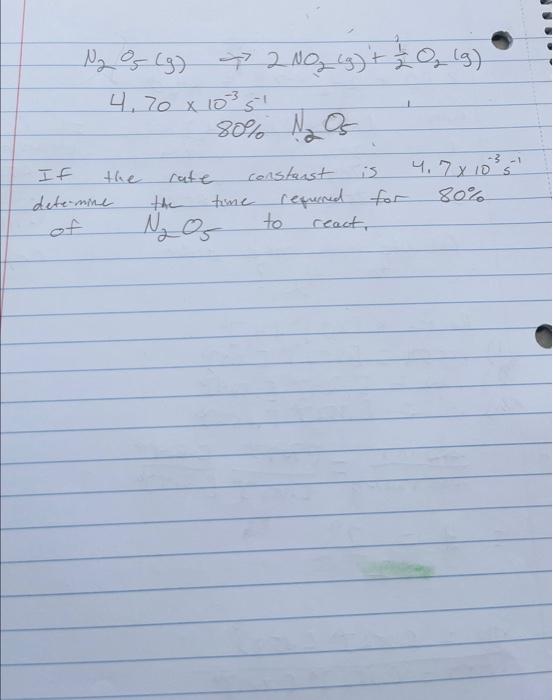 N₂O₅(g) → 2NO₂(g) + ½O₂(g)
4.70 x 10⁻³ s⁻¹
80% N₂O₅
If the rate constant is 4.7 x 10⁻³ s⁻¹
determine the time required for 80%
of N₂O₅ to react.